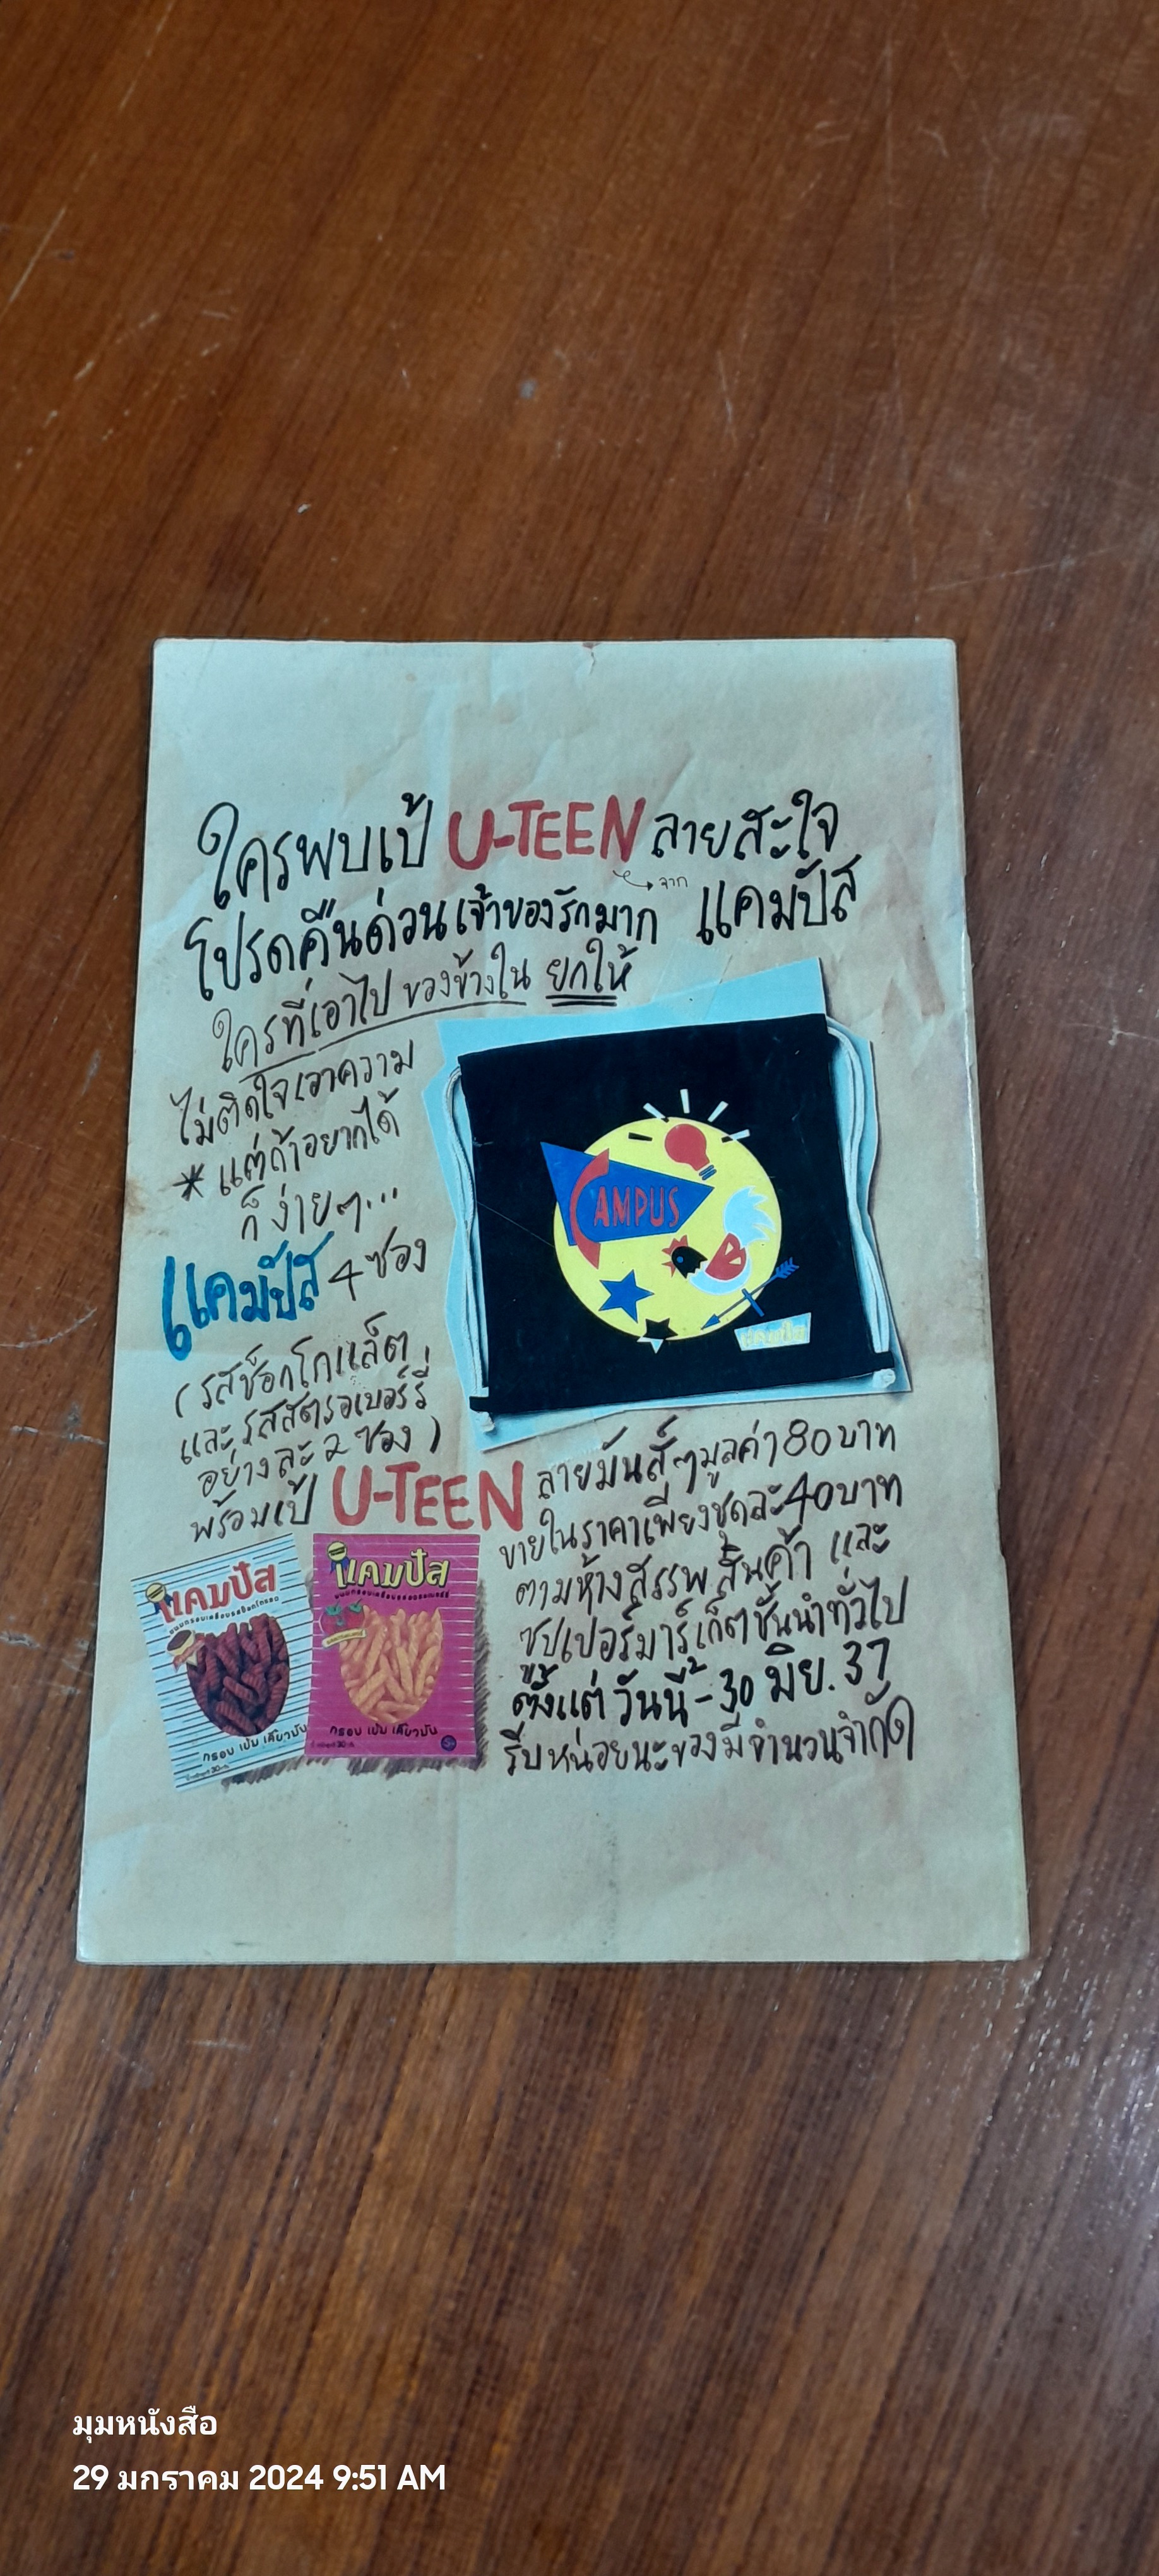 ใครพบเป้ U-TEEN ลายสะใจ
จาก
โปรดคืนด่วนเจ้าของรักมาก แคมปัส
ใครที่เอาไป ของข้างใน ยกให้
ไม่ติดใจเอาความ
* แต่ถ้าอยากได้
ก็ง่ายๆ...
แคมปัส 4 ซอง
(รสช็อกโกแล็ต
และรสสตรอเบอร์รี่
อย่างละ 2 ซอง)
พร้อมเป้ U-TEEN ลายมันส์ๆมูลค่า 80 บาท
ขายในราคาเพียงชุดละ 40 บาท
ตามห้างสรรพสินค้า และ
ซูปเปอร์มาร์เก็ตชั้นนำทั่วไป
ตั้งแต่ วันนี้ - 30 มิย. 37
รีบหน่อยนะของมีจำนวนจำกัด
CAMPUS
แคมปัส
แคมปัส
กรอบ เข้ม เคี้ยวมัน
แคมปัส
กรอบ เข้ม เคี้ยวมัน
มุมหนังสือ
29 มกราคม 2024 9:51 AM